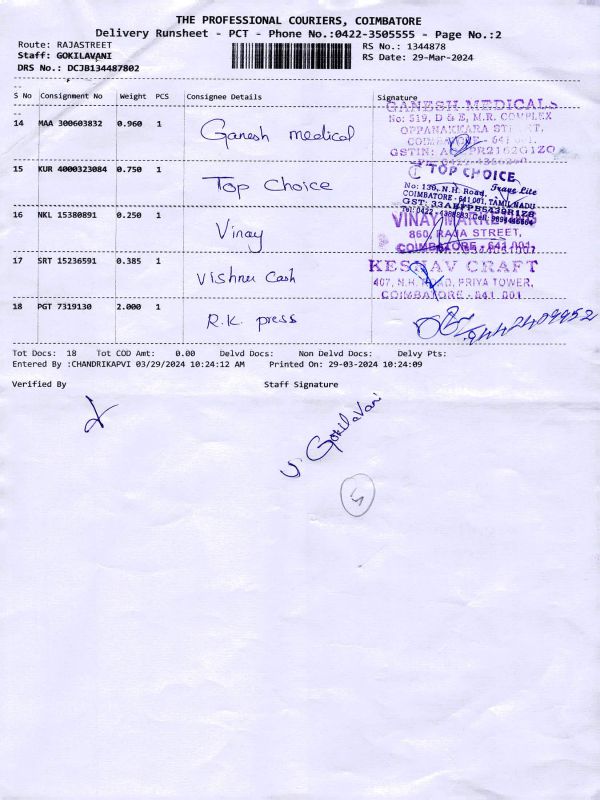 THE PROFESSIONAL COURIERS, COIMBATORE
Delivery Runsheet - PCT - Phone No.:0422-3505555 - Page No.:2
Route: RAJASTREET RS No.: 1344878
Staff: GOKILAVANI RS Date: 29-Mar-2024
DRS No.: DCJB134487802
S No Consignment No Weight PCS Consignee Details Signature
14 MAA 300603832 0.960 1 Ganesh medical
GANESH MEDICALS
No: 519, D & E, M.R. COMPLEX
OPPANAKKARA STREET,
15 KUR 4000323084 0.750 1 Top Choice
TOP CHOICE
No: 139, N.H. Road,
COIMBATORE - 641 001, TAMIL NADU
16 NKL 15380891 0.250 1 Vinay
VINAY
860, RAJA STREET,
COIMBATORE - 641 001
17 SRT 15236591 0.385 1 Vishnu Cash
KESHAV CRAFT
407, N.H. ROAD, PRIYA TOWER,
COIMBATORE - 641 001
18 PGT 7319130 2.000 1 R.K. press
9442409952
Tot Docs: 18 Tot COD Amt: 0.00 Delvd Docs: Non Delvd Docs: Delvy Pts:
Entered By :CHANDRIKAPVI 03/29/2024 10:24:12 AM Printed On: 29-03-2024 10:24:09
Verified By Staff Signature
Gokilavani